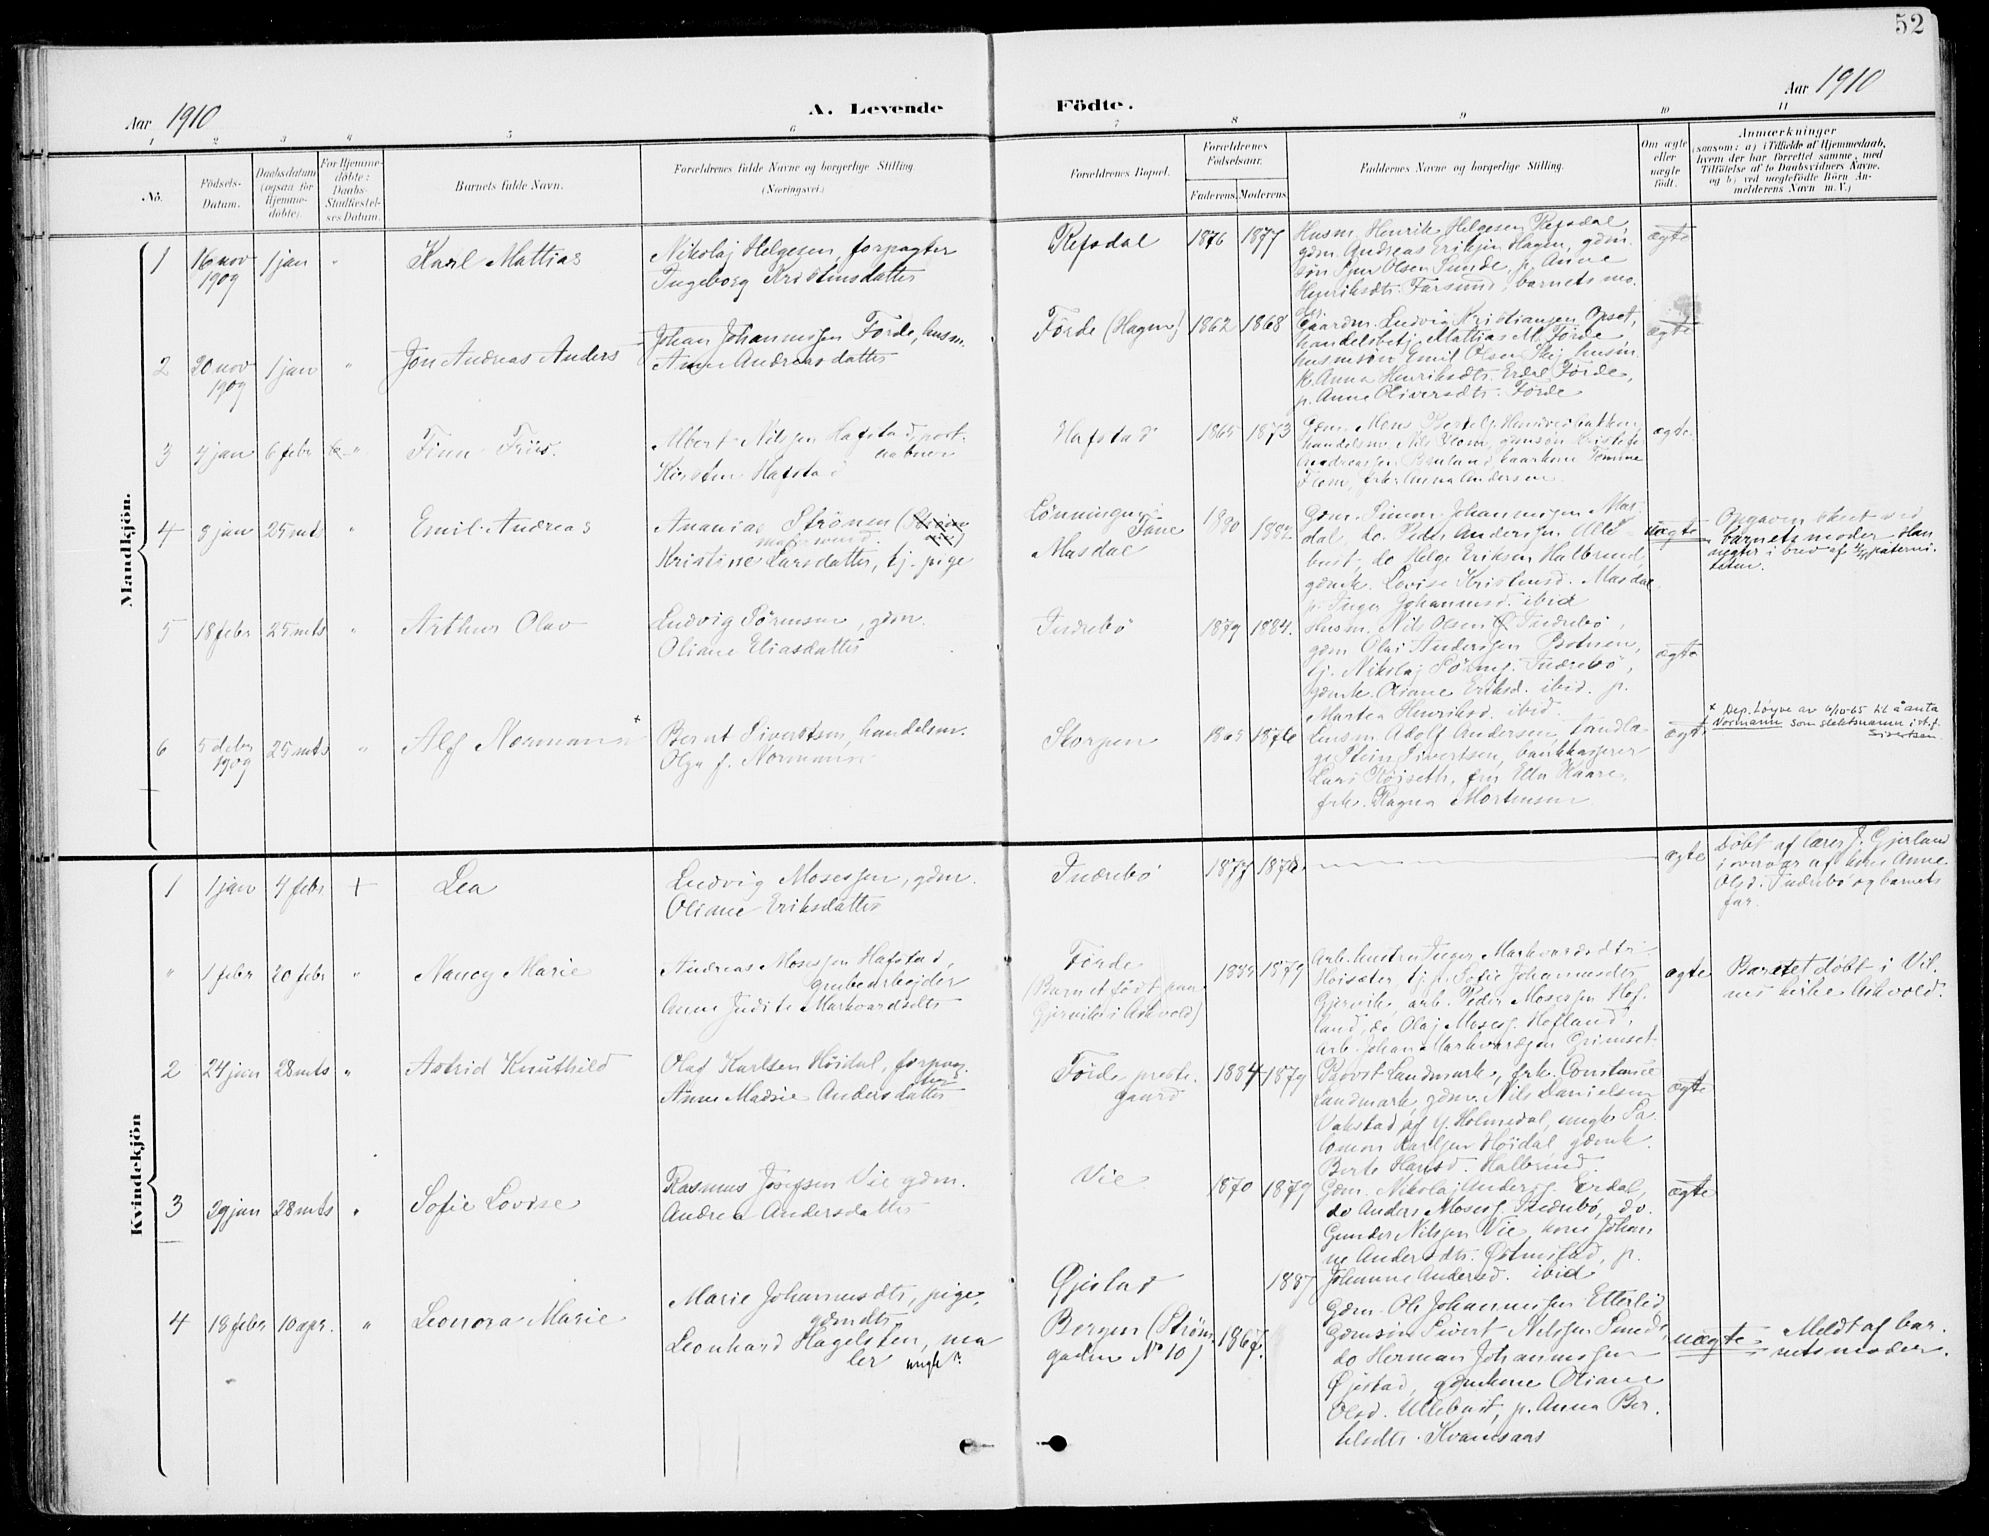 52
Aar 1910
A. Levende
Födte.
Aar 1910
1 2 3 4 5 6 7 8 9 10 11
No.
Födsels-
Datum.
Daabsdatum
(ogsaa for
Hjemme-
döbte).
For Hjemme-
döbte:
Daabs-
Stadfæstel-
ses Datum.
Barnets fulde Navn.
Forældrenes fulde Navne og borgerlige Stilling.
(Næringsvei.)
Forældrenes Bopæl.
Forældrenes
Födselsaar.
Faderens. Moderens.
Faddernes Navne og borgerlige Stilling.
Om ægte
eller
uægte
födt.
Anmærkninger
(saasom: a) i Tilfælde af Hjemmedaab,
hvem der har forrettet samme, med
Tilföielse af to Daabsvidners Navne,
og b) ved uægtefödte Börn An-
melderens Navn m. V.)
Mandkjön.
1 16 nov 1909 1 jan " Karl Mattias
Nikolaj Helgesen, forpagter
Ingeborg Kristensdatter
Refsdal 1876 1877
Husm. Henrik Helgesen Refsdal,
gdm. Andreas Eriksen Hagen, gdm.
søn Sjur Olsen Sunde, p. Anne
Henriksdtr. Farsund, barnets mo-
der.
ægte
2 20 nov 1909 1 jan " Jon Andreas Anders
Johan Johannessen Førde, husm.
Anne Andreasdatter
Førde (Hagen) 1862 1868
Gaardm. Ludvig Kristiansen Opset,
handelsbetj. Mattias M. Førde,
husmsøn Emil Olsen, husm
k. Anna Henriksdtr. Erdal Førde,
p. Anne Oliversdtr. Førde
ægte
3 4 jan 6 febr " Finn Friis.
Albert Nilsen Hafstad, post-
aabner
Kirsten Hafstad
Hafstad 1865 1873
Gdm. Mons Bertels.
handelsm. Nils Flom, gdmsøn Kristofer
Andreassen Bruland, Tomine
Flom, frk. Anna Andersen
ægte.
4 8 jan 25 mts " Emil Andreas
Ananias Strönen
Kristine Larsdatter, tj. pige
Lønningen,
Fane
Masdal
1882
Gdm. Simon Johannessen Mas-
dal, do Peder Andersen Ulle-
bust, do Helge Eriksen Halbrend,
gdmk. Lovise Kristensd. Masdal
p. Inger Johannesd. ibid
uægte
Opgaven sket ved
barnets moder. Han
negter i brev af paterni-
teten.
5 18 febr 25 mts " Arthur Olav
Ludvig Sørensen, gdm.
Oliane Eliasdatter
Indrebø 1879 1884.
Husm. Nils Olsen Indrebø,
gdm Olai Andersen Botnen,
tj. Nikolaj Sørens. Indrebø,
gdmk. Oliane Eriksd. ibid. p.
Martea Henriksd. ibid.
ægte
6 5 debr 1909 25 mts " Alf Normann x
Bernt Sivertsen, handelsm.
Olga f. Normann
Skorpen 1865 1876
Lensm. Adolf Andersen, tandlæ-
ge Stein Sivertsen, bankkasserer
Lars Røiseth, fru Ella Kaare,
frk. Ragna Mortensen
ægte
x Dep. løyve av 6/10-65 til å anta
Normann som slektsnamn i st. f.
Sivertsen.
Kvindekjön
1 1 jan 4 febr + Lea
Ludvig Mosessen, gdm.
Oliane Eriksdatter
Indrebø 1877 1878
ægte
Døbt af lærer J. Gjerland
i overvær af kone Anne
Olsd. Indrebø og barnets
far.
" 1 febr 20 febr " Nancy Marie
Andreas Mosessen Hafstad,
grubearbeider
Anne Judite Markvardsdtr
Førde
(Barnet født paa
Gjervik i Askvold)
1882 1879
Arb. hustru Inger Markvardsdtr.
Høisæter, tj.p. Sofie Johannesdtr
Gjervik, arb. Peder Mosessen Hof-
land, do Olaj Moses. Hofland,
arb. Johan Markvardsen Grimset
ægte
Barnet døbt i Vil-
nes kirke Askvold.
2 24 jan 28 mts " Astrid Knuthild
Olad Karlsen Høidal, forpag-
ter
Anne Madsie Andersdatter
Førde preste-
gaard
1884 1879
Provst Landmark, frk. Constance
Landmark, gdm. Nils Danielsen
Vakstad af Y. Holmedal, ungk. Sa-
lomon Karlsen Høidal, gdmk.
Berte Hansd. Halbrend.
ægte
3 29 jan 28 mts " Sofie Lovise
Rasmus Josefsen Vie gdm.
Andrea Andersdatter
Vie 1870 1879
Gdm. Nikolaj Anders. Erdal,
do Anders Moses. Indrebø, do.
Gunder Nilssen Vie, kone Johan-
ne Andersdtr. Østenstad, p.
Johanne Andersd. ibid
ægte
4 18 febr 10 apr. " Leonora Marie
Marie Johannesdtr, pige,
gdmdtr.
Leonhard Hagelsten, ma-
ler ungk?
Gjestad
Bergen (Strøm-
gaden No 10)
1867. 1887
Gdm. Ole Johannessen Etterlid,
Gdmsøn Sivert Nilssen Sunde,
do Herman Johannessen
Gjestad, gdmkone Oliane
Olsd. Ullebust, p. Anna Ber-
telsdtr. Kvamsaas
uægte
Meldt af bar-
nets moder.